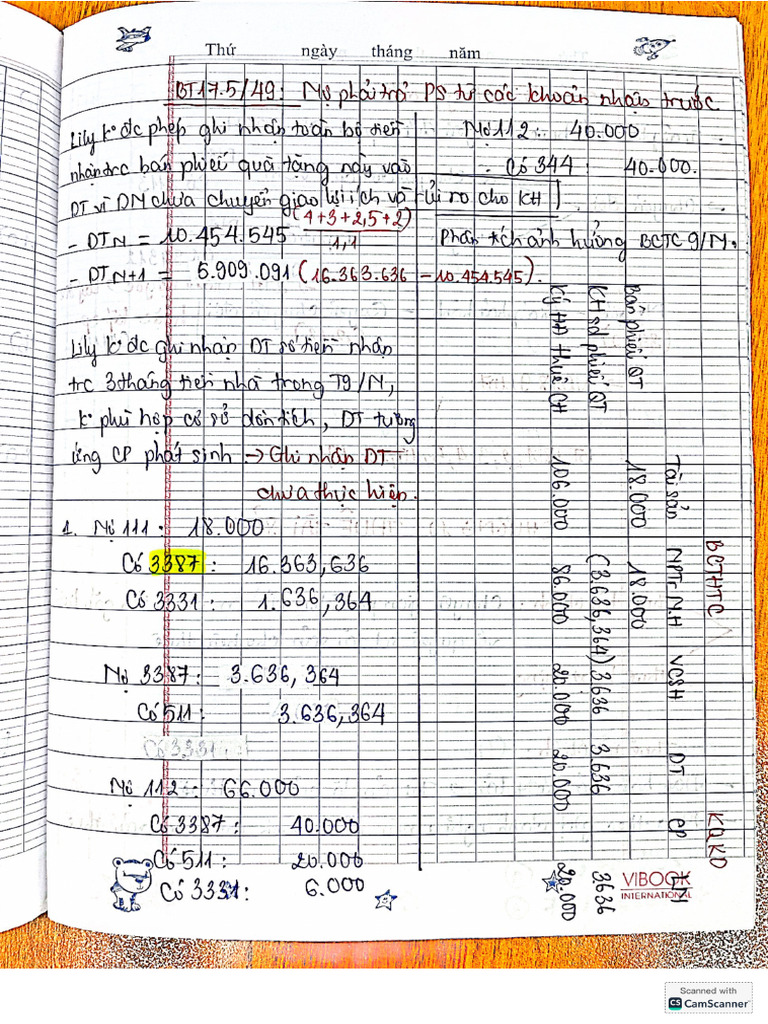 Thứ ngày tháng năm
BT17.5/49: Nợ phải trả PS từ các khoản nhận trước
Lily k đc phép ghi nhận toàn bộ tiền
nhận trc bán phiếu quà tặng này vào
DT vì DN chưa chuyển giao lợi ích và rủi ro cho KH
- DTN = 10.454.545 (4+3+2,5+2)
1,1
- DTN+1 = 5.909.091 (16.363.636 - 10.454.545).
Lily k đc ghi nhận DT số tiền nhận
trc 3 tháng tiền nhà trong T9/N,
k phù hợp cơ sở dồn tích, DT tương
ứng CP phát sinh → Ghi nhận DT
chưa thực hiện.
1. Nợ 111: 18.000
Có 3387: 16.363,636
Có 3331: 1.636,364
Nợ 3387: 3.636,364
Có 511: 3.636,364
Có 3331:
Nợ 112: 66.000
Có 3387: 40.000
Có 511: 20.000
Có 3331: 6.000
Nợ 112: 40.000
Có 344 40.000.
Phân tích ảnh hưởng BCTC 9/N.
BCTHTC KQKD
Tài sản NPTr N.H VCSH DT CP LN
Bán phiếu QT 18.000 18.000
KH sd phiếu QT (3.636,364) 3.636 3.636 3636
Ký HĐ thuê CH 106.000 86.000 20.000 20.000 20.000
VIBOOK
INTERNATIONAL
Scanned with
CS CamScanner